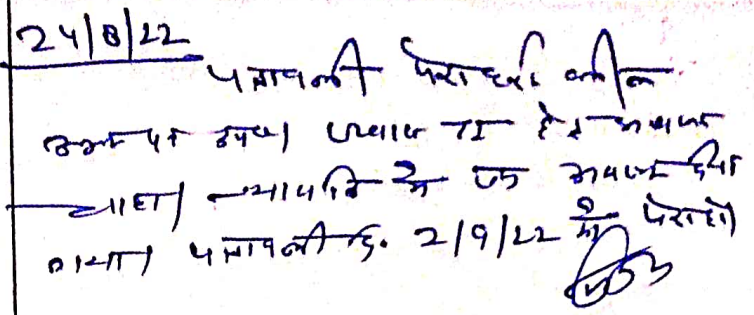 24/8/22
पत्रावली पेश हुई। वकील
पर उपस्थित। हेतु अवसर
चाहा। न्यायहित में एक अवसर दिया
गया। पत्रावली दि. 2/9/22 को पेश हो।